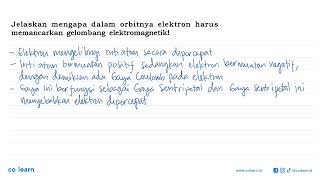 Jelaskan mengapa dalam orbitnya elektron harus
memancarkan gelombang elektromagnetik!
- Elektron mengelilingi inti atom secara dipercepat
- Inti atom bermuatan positif sedangkan elektron bermuatan negatif,
dengan demikian ada Gaya Coulomb pada elektron
- Gaya ini berfungsi sebagai Gaya Sentripetal dan Gaya Sentripetal ini
menyebabkan elektron dipercepat
co learn
www.colearn.id
@colearn.id